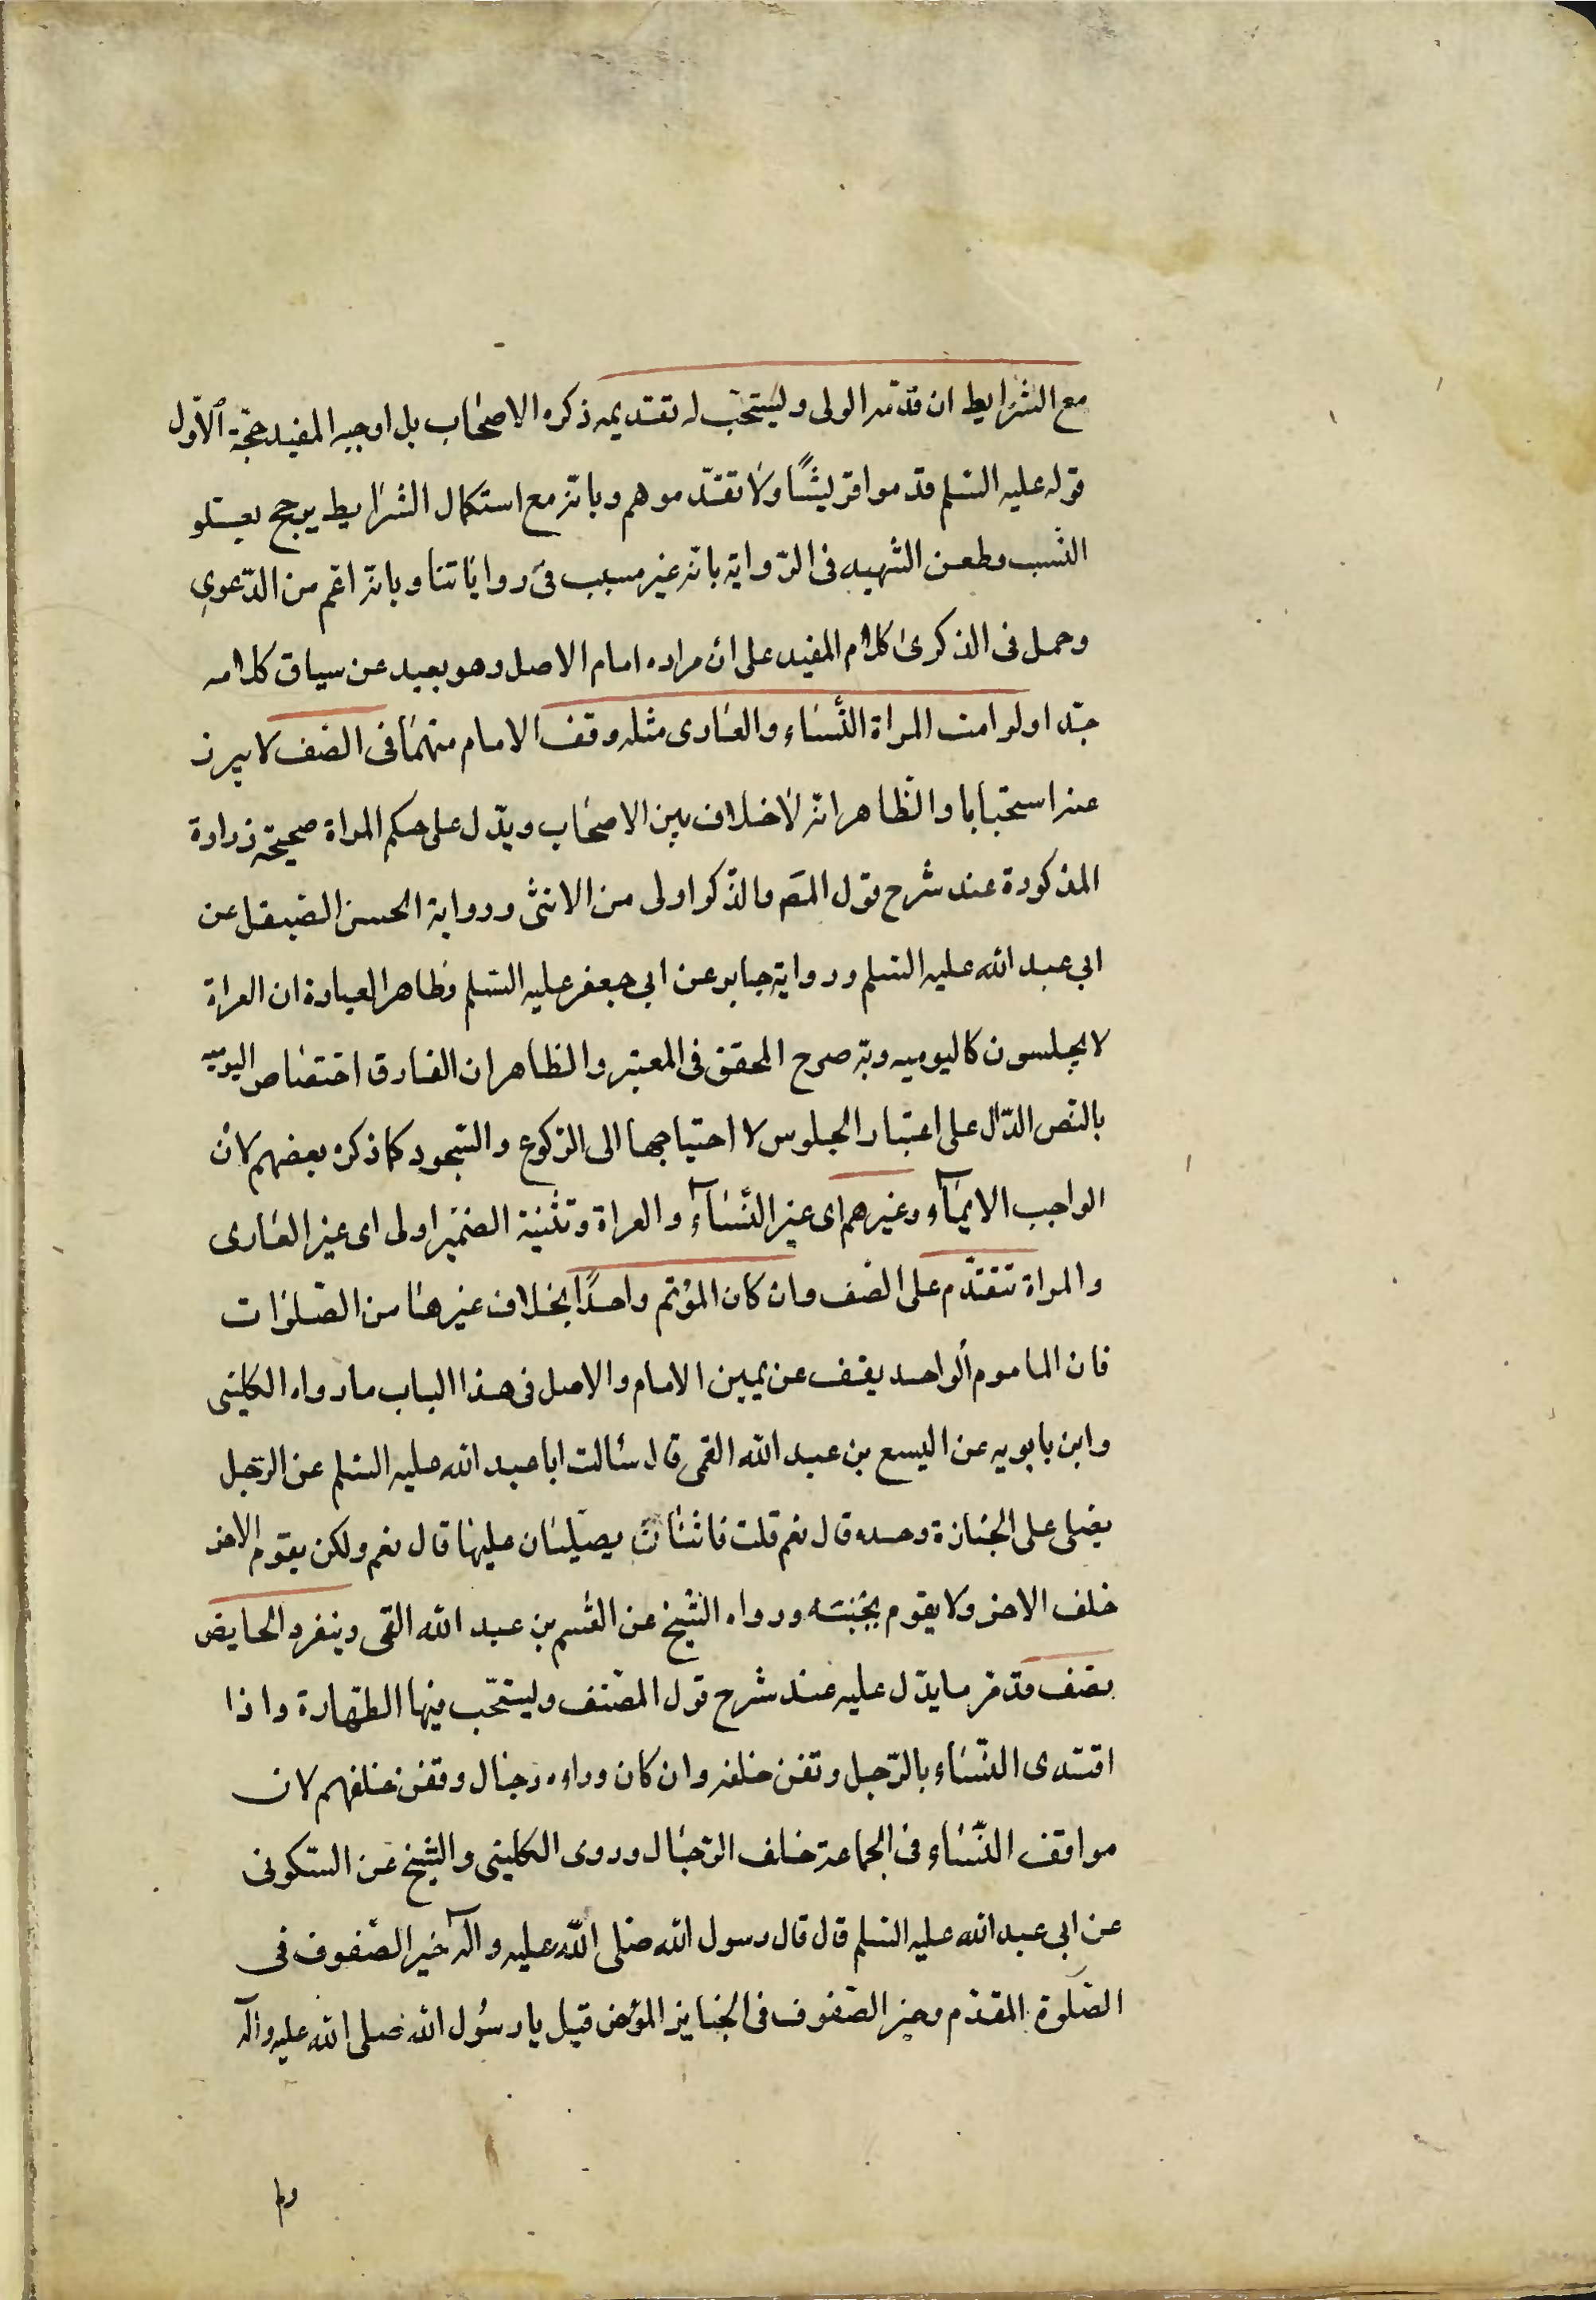 مع الشرايط ان قدّمه الولى ويستحبّ له تقديمه ذكره الاصحاب بل اوجبه المفيد حجّة الاوّل
قوله عليه السلم قدموا قريشًا ولا تقدّموهم وبانّه مع استكمال الشرايط يرجح بعلو
النسب وطعن الشهيد فى الرّواية بانه غير مسبب فى رواياتنا وبانّه اعمّ من الدّعوى
وحمل فى الذكرى كلام المفيد على ان مراده امام الاصل وهو بعيد عن سياق كلامه
جدا ولو امت المراة النّساء والعارى مثله وقف الامام منهما فى الصف لا يبرز
عنه استحبابا والظاهر انه لا خلاف بين الاصحاب ويدّل على حكم المراة صحيحة زرارة
المذكورة عند شرح قول المص والذّكر اولى من الانثى ورواية الحسن الصيقل عن
ابى عبد الله عليه السلم ورواية جابر عن ابى جعفر عليه السلم وظاهر العبارة ان العراة
لا يجلسون كاليوميه وبه صرح المحقق فى المعتبر والظاهر ان الفارق اختصاص اليوميّه
بالنّص الدّال على اعتبار الجلوس لا احتياجها الى الرّكوع والسّجود كما ذكره بعضهم لان
الواجب الايماء وغيرهم اى غير النّساء والعراة وتثنية الضمير اولى اى غير العارى
والمراة تتقدّم على الصّف وان كان المؤتم واحدًا بخلاف غيرها من الصّلوات
فان الماموم الواحد يقف عن يمين الامام والاصل فى هذا الباب ما رواه الكلينى
وابن بابويه عن اليسع بن عبد الله القمى قال سئالت ابا عبد الله عليه السلم عن الرّجل
يصلى على الجنازة وحده قال نعم قلت فاثنان يصلّيان عليها قال نعم ولكن يقوم الاخر
خلف الاخر ولا يقوم بجنبه ورواه الشيخ عن القسم بن عبد الله القمى وينفرد الحايض
بصف قد مرّ ما يدّل عليه عند شرح قول المصنف ويستحّب فيها الطهارة واذا
اقتدى النّساء بالرّجل وقفن خلفه وان كان وراءه رجال وقفن خلفهم لان
مواقف النّساء فى الجماعة خلف الرّجال وروى الكلينى والشيخ عن السكونى
عن ابى عبد الله عليه السلم قال قال رسول الله صلى اللّه عليه وآله خير الصّفوف فى
الصّلوة المقدّم وخير الصّفوف فى الجنايز المؤخر قيل يا رسول الله صلى الله عليه وآله
ولم